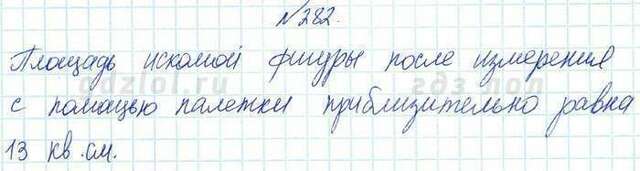 №282.
Площадь искомой фигуры после измерения
с помощью палетки приблизительно равна
13 кв.см.